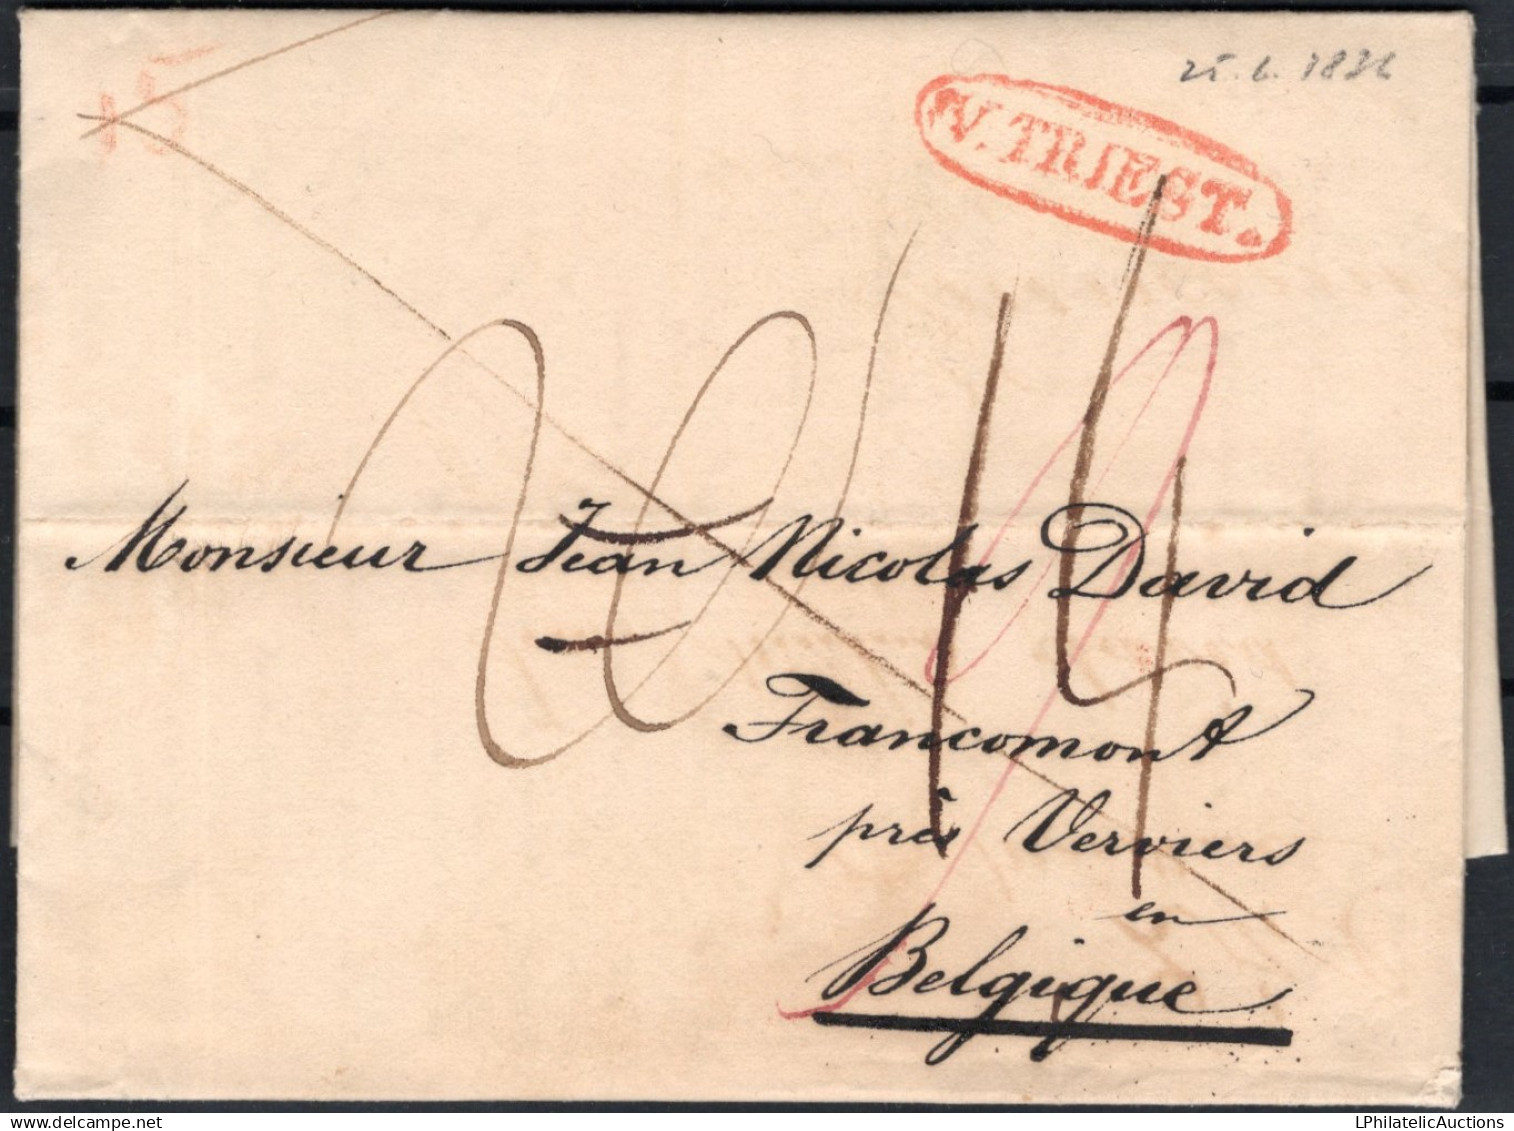 25.6.1836
V. TRIEST.
Monsieur Jean Nicolas David
Francomont
près Verviers
en
Belgique
delcampe.net
LPhilatelicAuctions